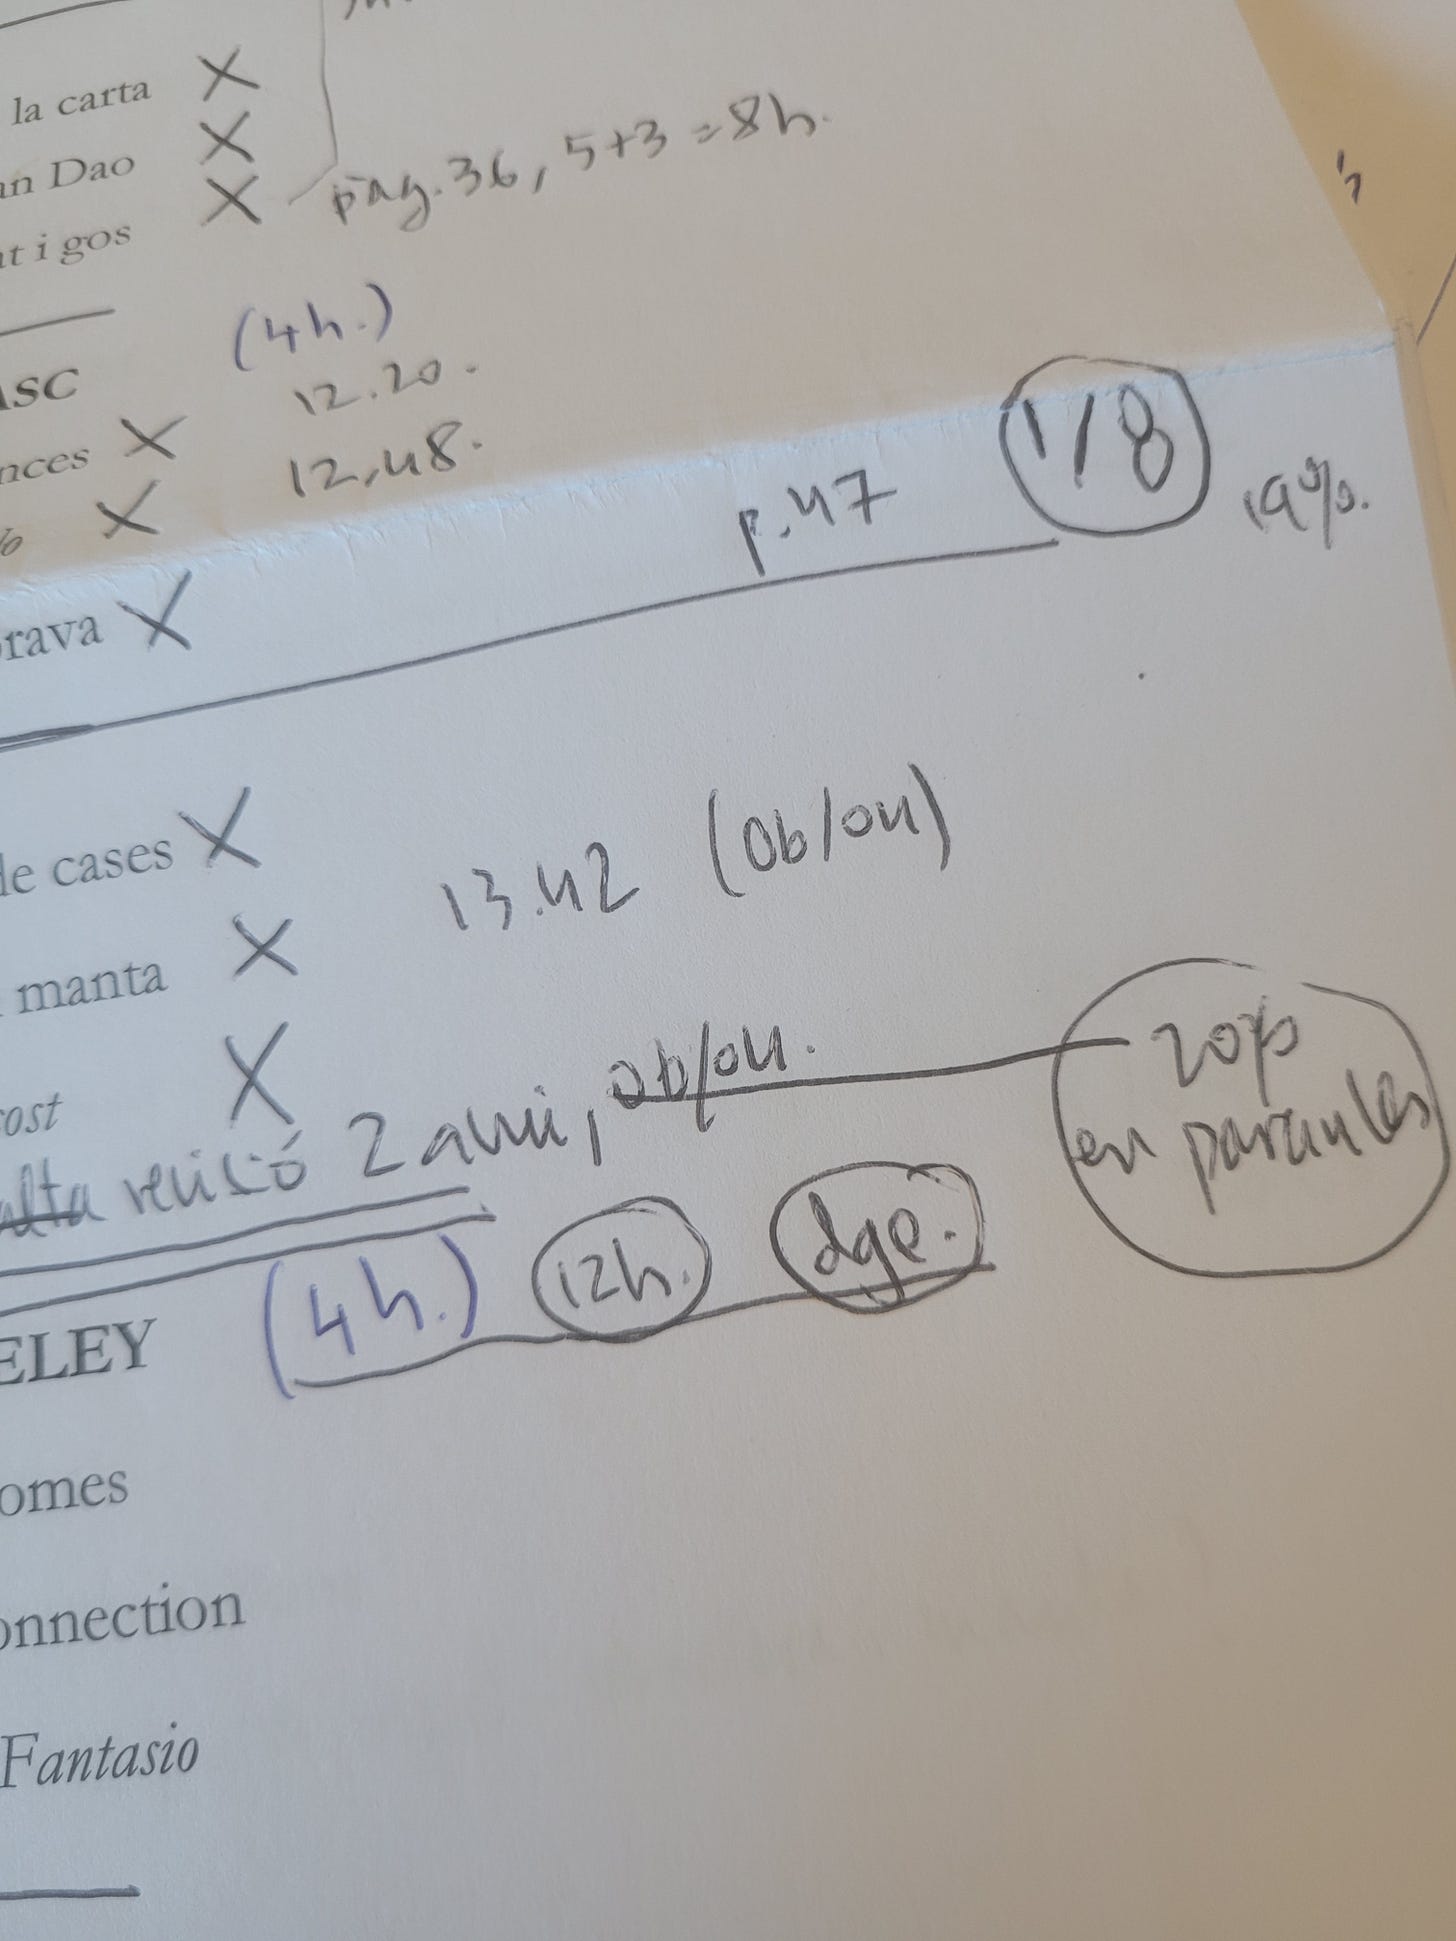 la carta X
an Dao X
at i gos X pàg. 36, 5+3=8h.
(4h.)
ASC 12.20.
nces X 12,48.
% X
p.47 1/8 19%.
rava X
de cases X 13.42 (Ob/ou)
manta X
cost X
alta revisió 2 avui, ob/ou. 20% en paraules
ELEY (4h.) 12h. dge.
omes
onnection
Fantasio